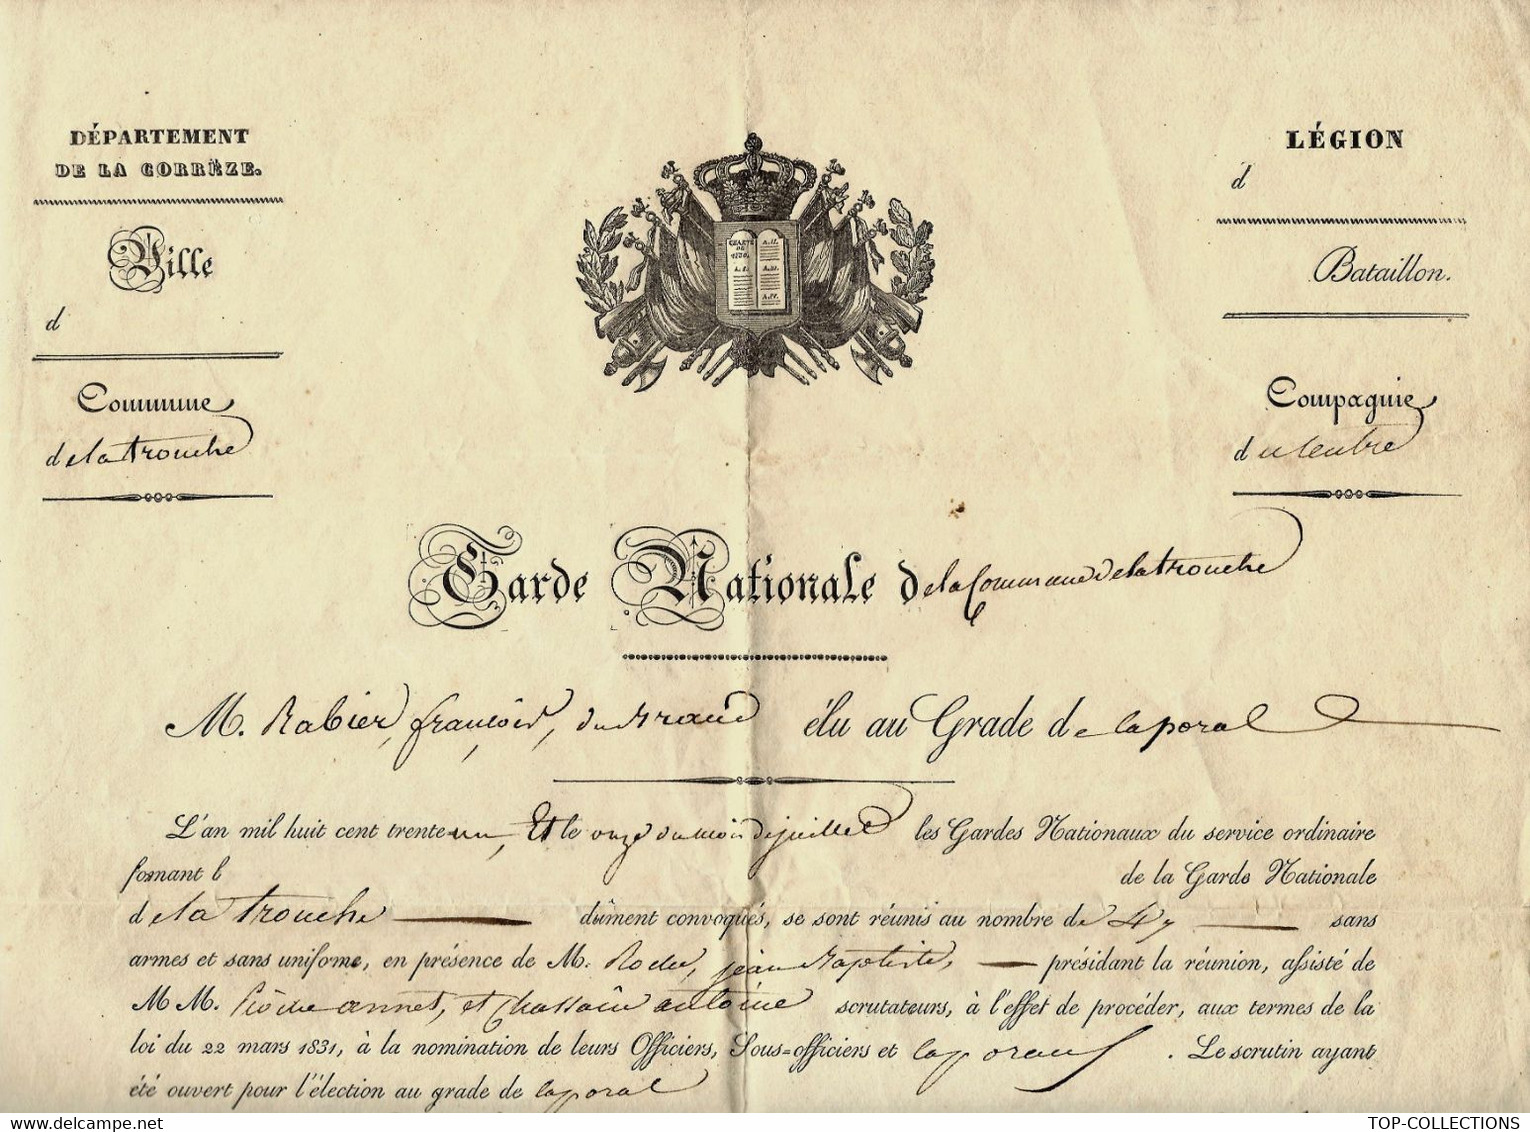 DÉPARTEMENT
DE LA CORRÈZE.
Ville
d
Commune
de la trouche
CHARTE
DE
1830.
LÉGION
d
Bataillon.
Compagnie
du Centre
Garde Nationale de la Commune de la trouche
M. Rabier, françois, élu au Grade de Caporal
L'an mil huit cent trente un, Et le onze du mois de juillet les Gardes Nationaux du service ordinaire
formant l de la Garde Nationale
de la trouche dûment convoqués, se sont réunis au nombre de 47 sans
armes et sans uniforme, en présence de M. Roche, jean Baptiste, présidant la réunion, assisté de
M M. annet, et Chassain antoine scrutateurs, à l'effet de procéder, aux termes de la
loi du 22 mars 1831, à la nomination de leurs Officiers, Sous-officiers et Caporaux. Le scrutin ayant
été ouvert pour l'élection au grade de Caporal
delcampe.net
TOP-COLLECTIONS